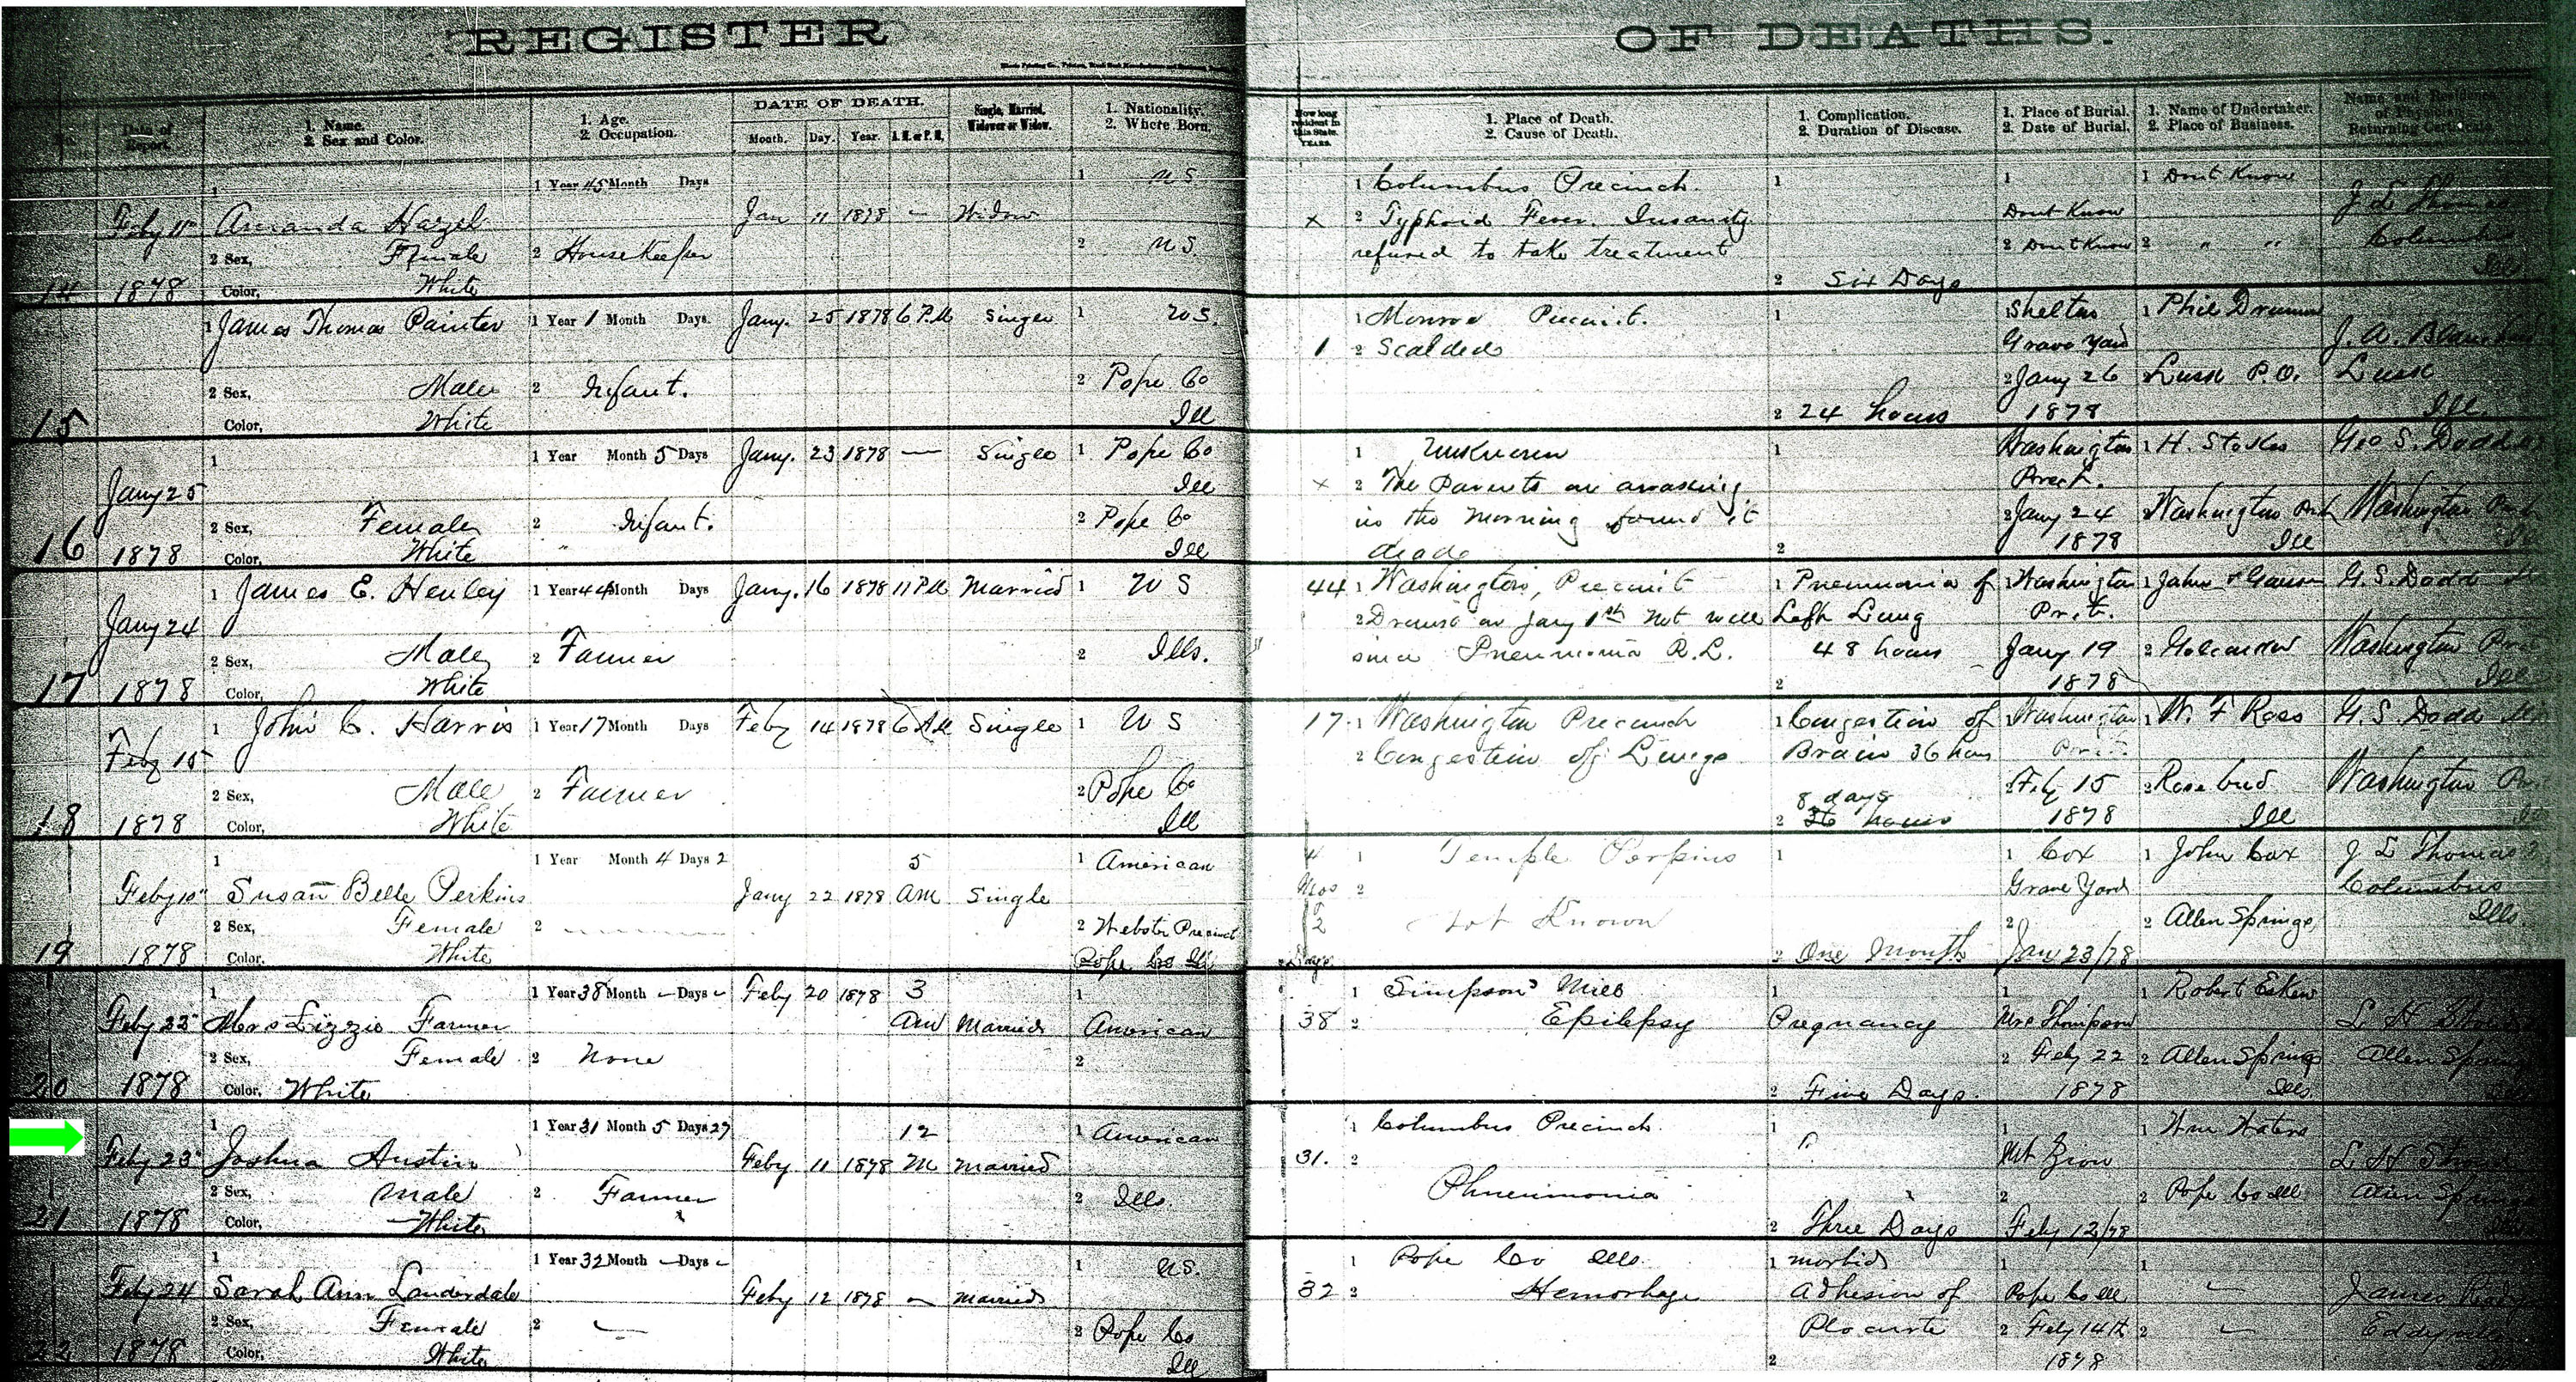 REGISTER OF DEATHS.
DATE OF DEATH.
No. Date of Report. 1. Name. 2. Sex and Color. 1. Age. 2. Occupation. Month. Day. Year. A.M. or P.M. Single, Married, Widower or Widow. 1. Nationality. 2. Where Born. How long resident in this State. YEARS. 1. Place of Death. 2. Cause of Death. 1. Complication. 2. Duration of Disease. 1. Place of Burial. 2. Date of Burial. 1. Name of Undertaker. 2. Place of Business. Name and Residence of Physician Returning Certificate.
1 1 Year 45 Month Days 1 U S 1 Columbus Precinch. 1 1 1 Dont Know
Feby 1878 Amanda Hazel Jan 11 1878 – Widow x 2 Typhoid Fever. Insanity Dont Know J L Thomas
2 Sex, Female 2 House Keeper 2 U S. refused to take treatment 2 Dont Know 2 " " Columbus
14 Color, White 2 Six Days Ills.
1 James Thomas Painter 1 Year 1 Month Days. Jany. 25 1878 6 P.M Single 1 U S. 1 Monroe Precinct. 1 1 Shelton 1 Phil
1 2 Scalded Grave Yard J. A.
2 Sex, Male 2 Infant. 2 Pope Co 2 Jany 26 2 Lusk P.O. Lusk
15 Color, White Ill 2 24 hours 1878 Ill.
1 1 Year Month 5 Days Jany. 23 1878 — Single 1 Pope Co 1 Unknown 1 Washington 1 H. Stokes Geo S. Dodd
Jany 25 Ill x 2 The Parents on awaking Prect.
2 Sex, Female 2 Infant. 2 Pope Co in the Morning found it 2 Jany 24 2 Washington Washington
16 1878 Color, White " Ill dead 2 1878 Ill
1 James E. Henley 1 Year 44 Month Days Jany. 16 1878 11 P.M Married 1 U S 44 1 Washington, Precinct 1 Pneumonia of 1 Washington 1 John G. S. Dodd
Jany 24 2 on Jany 1st Not well Left Lung Prct.
2 Sex, Male 2 Farmer 2 Ills. since Pneumonia R.L. 48 hours Jany 19 2 Golconda Washington
17 1878 Color, White 2 1878 Ill
1 John C. Harris 1 Year 17 Month Days Feby 14 1878 6 A.M Single 1 U S 17 1 Washington Precinch 1 Congestion of 1 Washington 1 W. F Ross G. S Dodd
Feby 15 2 Congestion of Lungs Brain 36 hours Prct.
2 Sex, Male 2 Farmer 2 Pope Co 8 days 2 Feby 15 2 Rosebud Washington
18 1878 Color, White Ill 2 36 hours 1878 Ill
1 1 Year Month 4 Days 2 5 1 American 4 1 Temple Perkins 1 1 Cox 1 John Cox J L Thomas
Feby 10 Susan Belle Perkins Jany 22 1878 AM Single Mos 2 Grave Yard Columbus
2 Sex, Female 2 2 Webster Precinct 2 Not Known 2 2 Allen Springs Ills.
19 1878 Color. White Pope Co Ill Days 2 One Month Jan 23/78
1 1 Year 38 Month – Days – Feby 20 1878 3 1 1 Simpson's Mill 1 1 1 Robert Eskew
Feby 22 Mrs Lizzie Farmer AM Married American 38 2 Epilepsy Pregnancy Mrs Thompson L H
2 Sex, Female 2 None 2 2 Feby 22 2 Allen Springs Allen Springs
20 1878 Color, White 2 Five Days. 1878 Ills.
1 1 Year 31 Month 5 Days 27 12 1 American 1 Columbus Precinch. 1 1 1 Wm Waters
Feby 23 Joshua Austin Feby 11 1878 M Married 31. 2 Mt Zion L H
2 Sex, Male 2 Farmer 2 Ills. Phneumonia 2 2 Pope Co Ill Allen Springs
21 1878 Color, White 2 Three Days Feby 12/78
1 1 Year 32 Month – Days – 1 U.S. 1 Pope Co Ills. 1 morbid 1 1
Feby 24 Sarah Ann Lauderdale Feby 12 1878 – Married 32 2 Hemorhage Adhesion of Pope Co Ill James
2 Sex, Female 2 2 Pope Co 2 Feby 14th 2
22 1878 Color, White Ill 2 1878